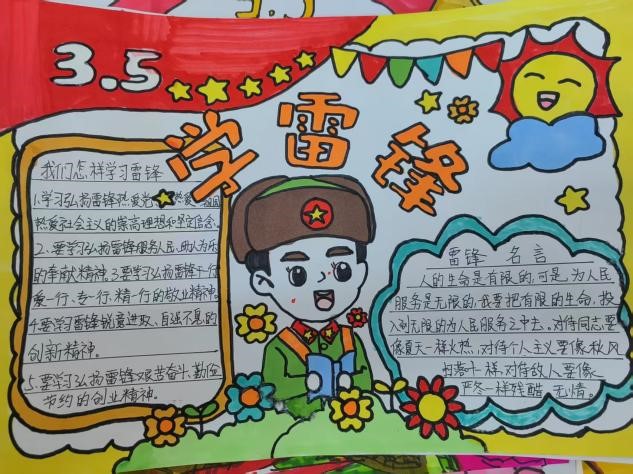 3.5
学雷锋
我们怎样学习雷锋
1.学习弘扬雷锋热爱党、热爱祖国
热爱社会主义的崇高理想和坚定信念。
2.要学习弘扬雷锋服务人民、助人为乐
的奉献精神。3.要学习弘扬雷锋干一行
爱一行、专一行、精一行的敬业精神。
4.要学习雷锋锐意进取、自强不息的
创新精神。
5.要学习弘扬雷锋艰苦奋斗、勤俭
节约的创业精神。
雷锋 名言
人的生命是有限的,可是,为人民
服务是无限的,我要把有限的生命,投
入到无限的为人民服务之中去。对待同志要
像夏天一样火热,对待个人主义要像秋风
落叶一样,对待敌人要像
严冬一样残酷无情。